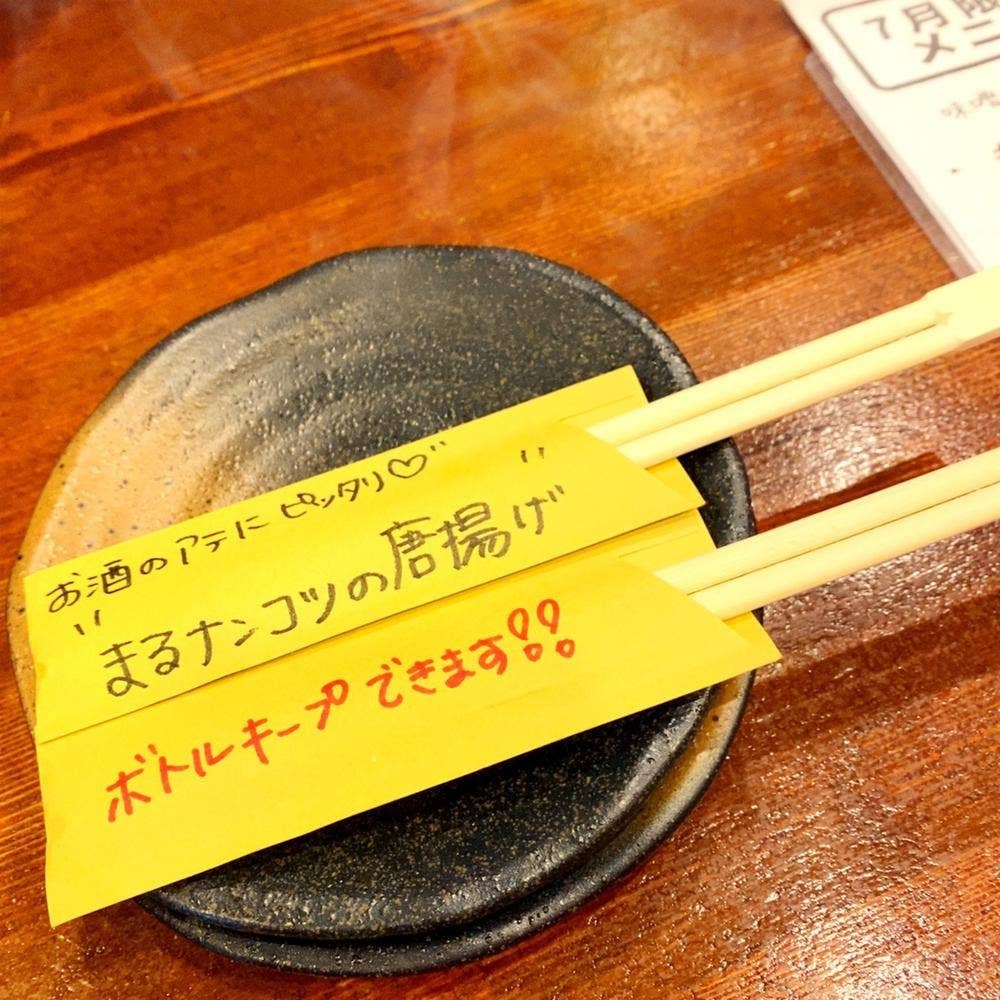 お酒のアテに ピッタリ♡
"まるナンコツの唐揚げ"
ボトルキープ できます!!
7月限
メニ